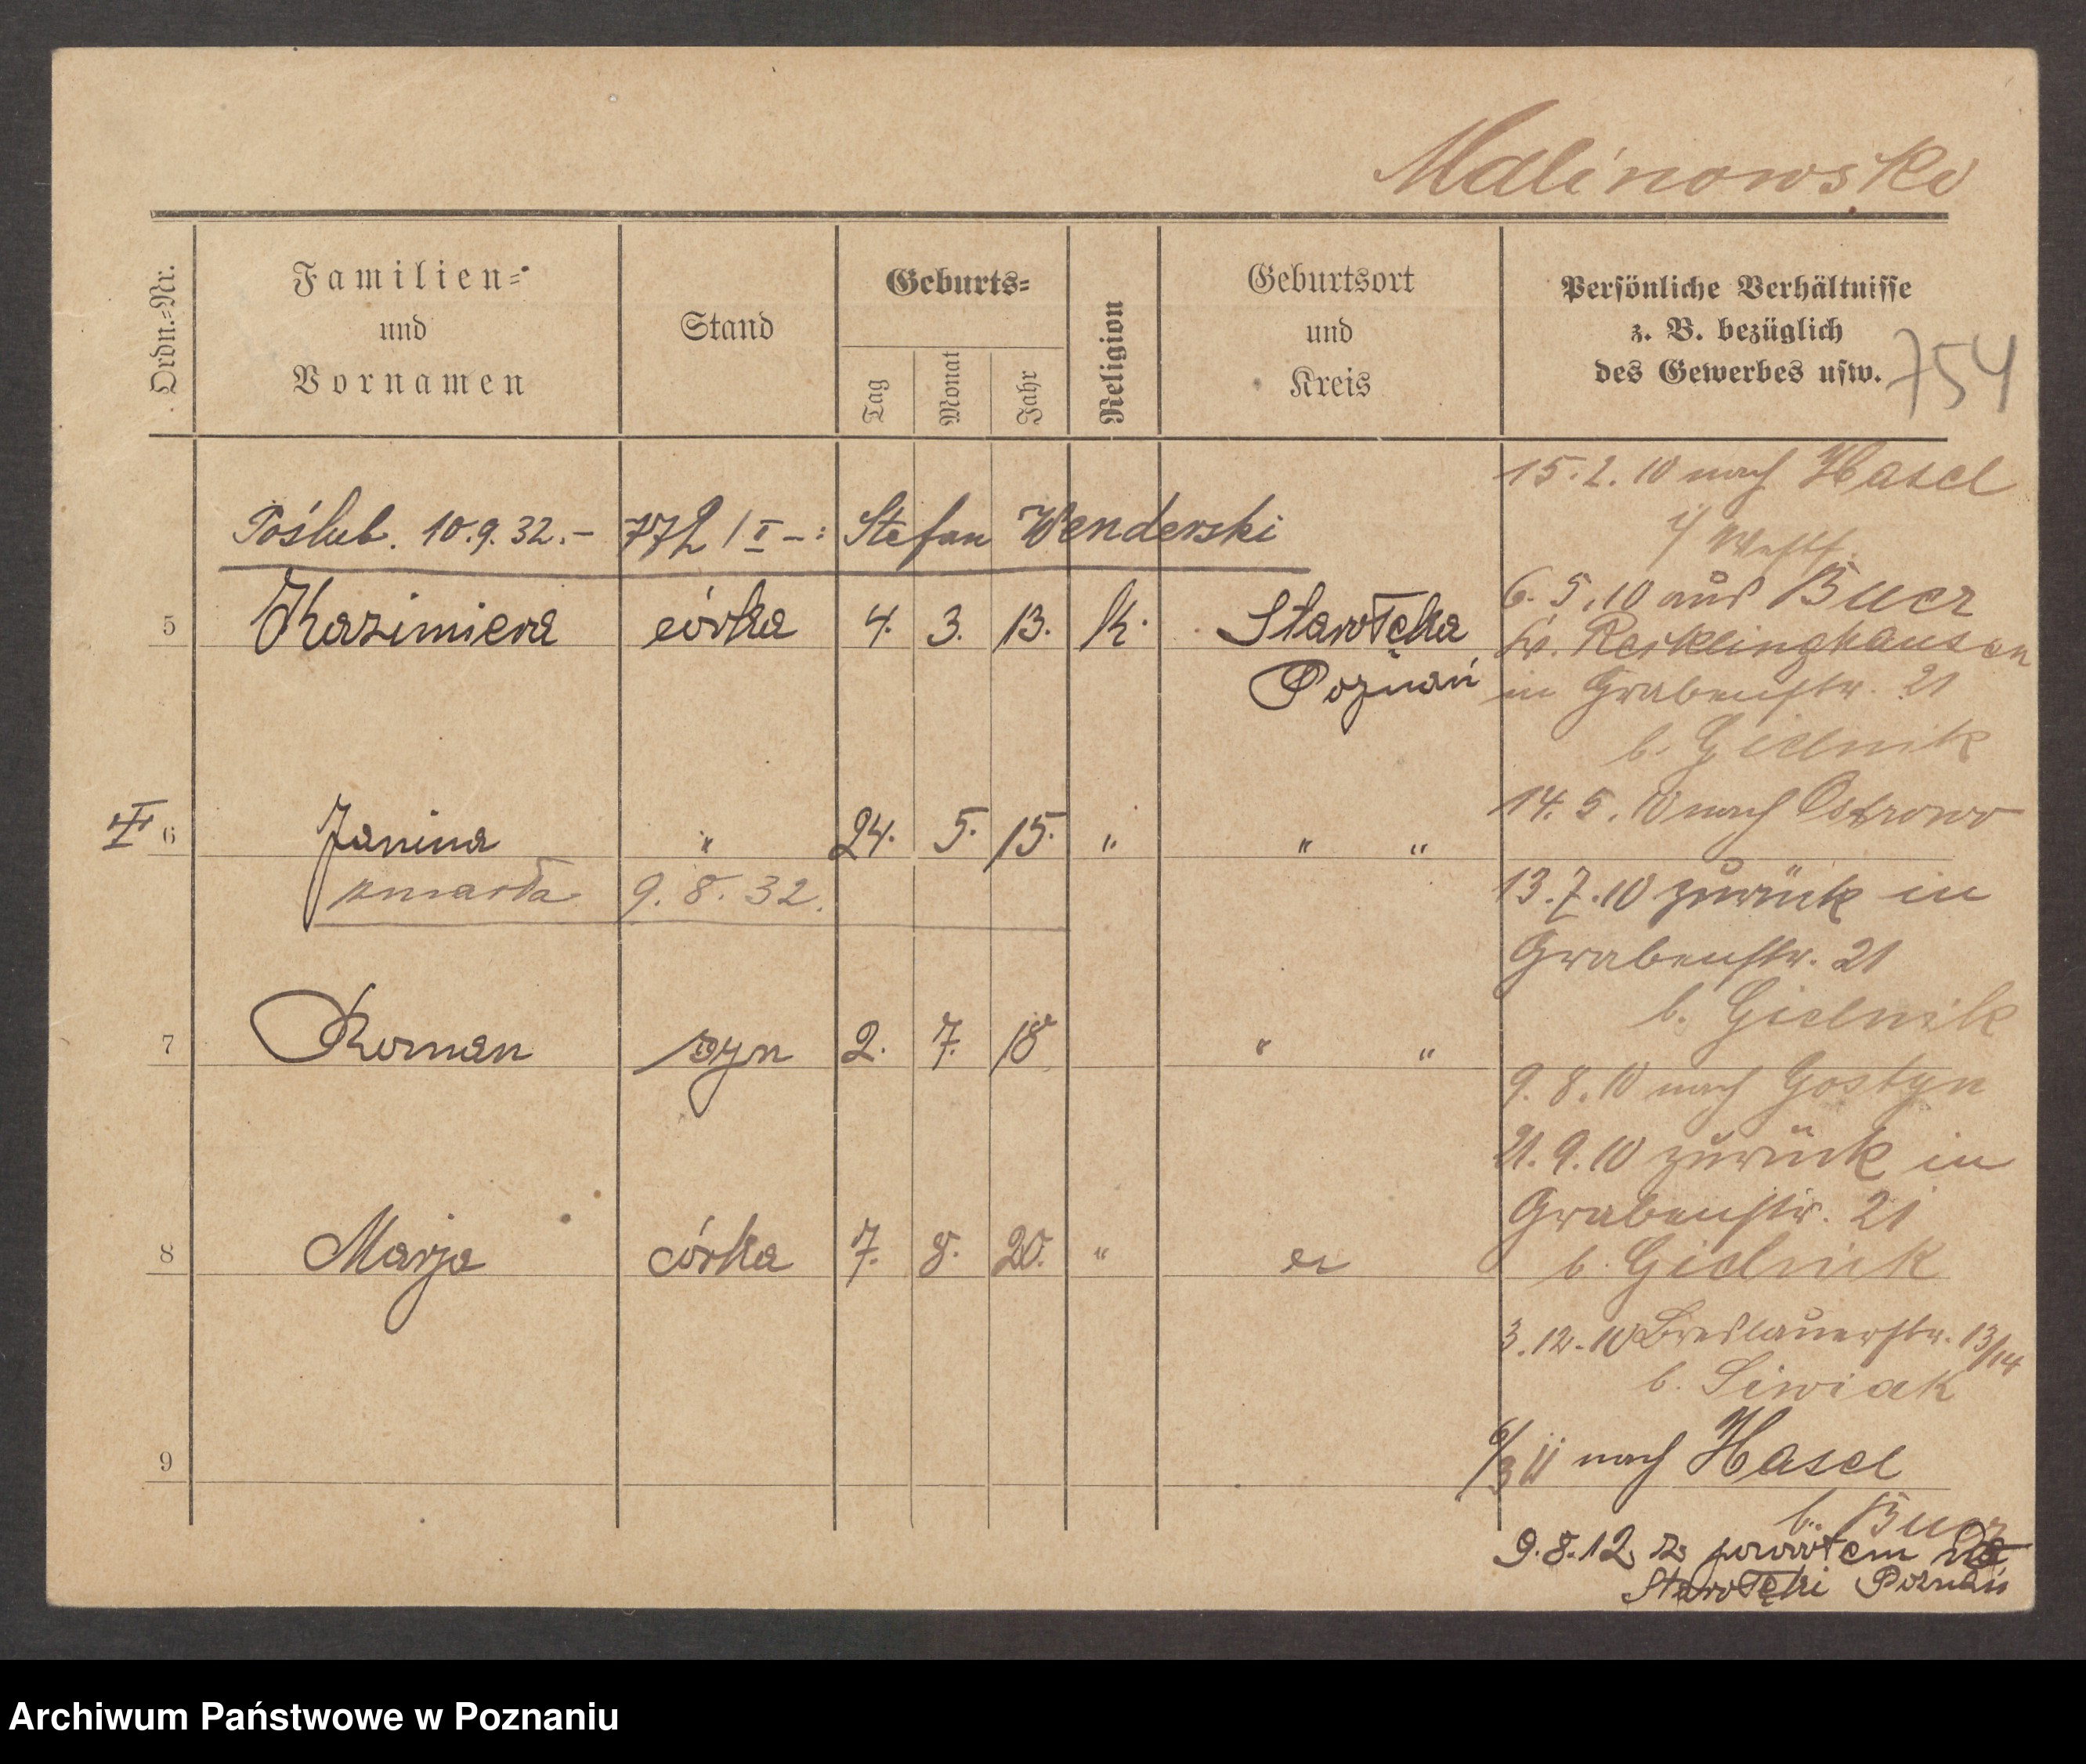 Malinowski
Ordn.=Nr.
Familien=
und
Vornamen
Stand
Geburts=
Tag
Monat
Jahr
Religion
Geburtsort
und
Kreis
Persönliche Verhältnisse
z. B. bezüglich
des Gewerbes usw.
754
Poślub. 10.9.32.– 772 / I –: Stefan Wenderski
5 Kazimiera córka 4. 3. 13. k. Starołęka
Poznań
6 Janina " 24. 5. 15. " " "
zmarła 9. 8. 32.
7 Roman syn 2. 7. 18 " "
8 Marja córka 7. 8. 20. "
9
15.2.10 nach Hasel
i/ Westf.
6.5.10 aus Buer
Kr. Recklinghausen
in Grabenstr. 21
b. Gielnik
14.5.10 nach Ostrowo
13.7.10 zurück in
Grabenstr. 21
b. Gielnik
9.8.10 nach Gostyn
21.9.10 zurück in
Grabenstr. 21
b. Gielnik
3.12.10 Breslauerstr. 13/14
b. Siwiak
6/3 11 nach Hasel
b. Buer
9.8.12 z powrotem do
Starołęki Poznań
Archiwum Państwowe w Poznaniu